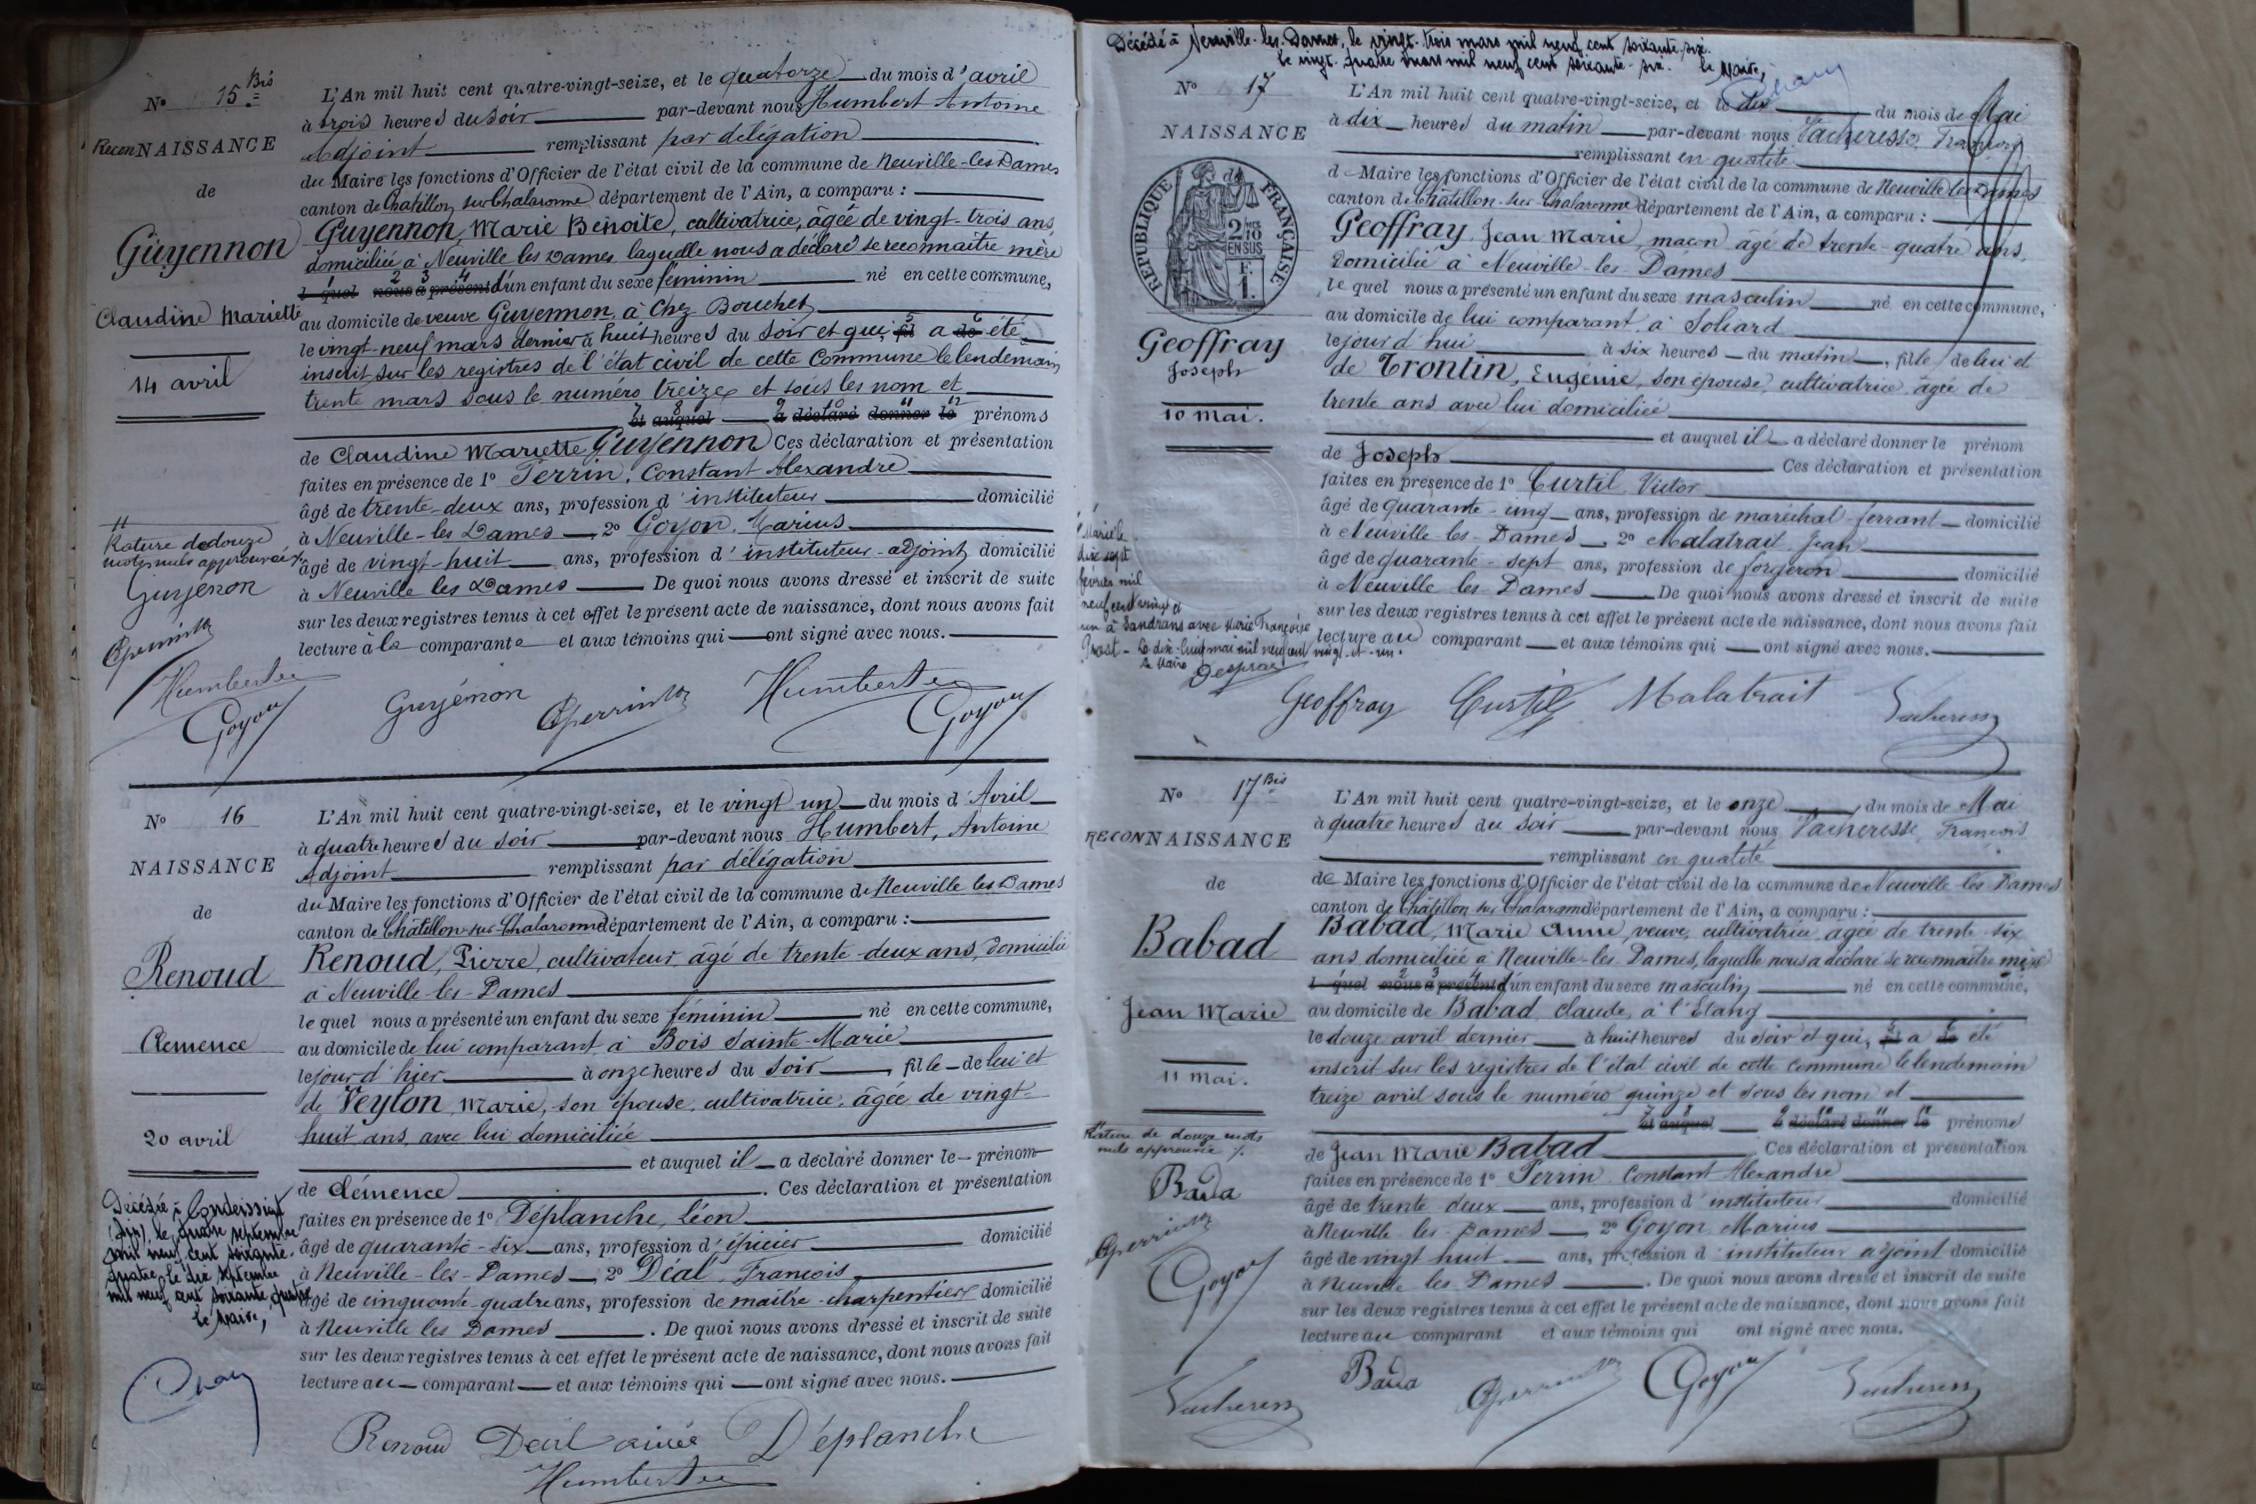 N° 15 Bis
ReconNAISSANCE
de
Guyennon
Claudine Mariette
14 avril
Rature de douze
mots nuls approuvée
Guyenon
CPerrin
Humbert
Goyon
L'An mil huit cent quatre-vingt-seize, et le quatorze du mois d'avril
à trois heures du soir par-devant nous Humbert Antoine
Adjoint remplissant par délégation
du Maire les fonctions d'Officier de l'état civil de la commune de Neuville-les-Dames
canton de Châtillon sur Chalaronne département de l'Ain, a comparu :
Guyennon, Marie Benoite, cultivatrice, âgée de vingt-trois ans,
domiciliée à Neuville les Dames, laquelle nous a déclaré se reconnaître mère
l quel nous a présenté d'un enfant du sexe féminin né en cette commune,
au domicile de veuve Guyennon, à Chez Bouchet
le vingt-neuf mars dernier à huit heures du soir et qui, fil a de été
inscrit sur les registres de l'état civil de cette Commune le lendemain
trente mars sous le numéro treize et sous les nom et
Et auquel a déclaré donner le prénoms
de Claudine Mariette Guyennon Ces déclaration et présentation
faites en présence de 1° Perrin, Constant Alexandre
âgé de trente-deux ans, profession d'instituteur domicilié
à Neuville-les Dames 2° Goyon, Marius
âgé de vingt-huit ans, profession d'instituteur-adjoint domicilié
à Neuville les Dames De quoi nous avons dressé et inscrit de suite
sur les deux registres tenus à cet effet le présent acte de naissance, dont nous avons fait
lecture à la comparante et aux témoins qui ont signé avec nous.
Guyénon CPerrin Humbert Goyon
N° 16
NAISSANCE
de
Renoud
Clemence
20 avril
Décédée à Condeissiat
(Ain), le quatre septembre
mil neuf cent soixante-
quatre, le dix septembre
mil neuf cent soixante quatre
Le Maire,
L'An mil huit cent quatre-vingt-seize, et le vingt un du mois d'Avril
à quatre heures du soir par-devant nous Humbert, Antoine
Adjoint remplissant par délégation
du Maire les fonctions d'Officier de l'état civil de la commune de Neuville les Dames
canton de Châtillon-sur-Chalaronne département de l'Ain, a comparu :
Renoud, Pierre, cultivateur, âgé de trente-deux ans, domicilié
à Neuville-les-Dames
le quel nous a présenté un enfant du sexe féminin né en cette commune,
au domicile de lui comparant à Bois Sainte-Marie
le jour d'hier à onze heures du soir, fille de lui et
de Veylon, Marie, son épouse, cultivatrice, âgée de vingt-
huit ans, avec lui domiciliée
et auquel il a déclaré donner le prénom
de Clémence. Ces déclaration et présentation
faites en présence de 1° Déplanche, Léon
âgé de quarante-six ans, profession d'épicier domicilié
à Neuville-les-Dames, 2° Déal, François
âgé de cinquante-quatre ans, profession de maître-charpentier domicilié
à Neuville les Dames. De quoi nous avons dressé et inscrit de suite
sur les deux registres tenus à cet effet le présent acte de naissance, dont nous avons fait
lecture au comparant et aux témoins qui ont signé avec nous.
Renoud Deal ainée Déplanche
Humbert
Décédé à Neuville-les-Dames, le vingt-trois mars mil neuf cent soixante-six.
Le vingt-quatre mars mil neuf cent soixante-six. Le Maire,
N° 17
NAISSANCE
de
RÉPUBLIQUE FRANÇAISE
2/10 EN SUS
Geoffray
Joseph
10 mai.
Marié le
dix sept
février mil
neuf cent vingt et
un à Sandrans avec Marie Françoise
Prost - Le dix-huit mai mil neuf cent vingt-et-un.
Le Maire
L'An mil huit cent quatre-vingt-seize, et le dix du mois de Mai
à dix heures du matin par-devant nous Vacheresse, François
remplissant en qualité
de Maire les fonctions d'Officier de l'état civil de la commune de Neuville les Dames
canton de Châtillon-sur-Chalaronne département de l'Ain, a comparu :
Geoffray, Jean Marie, maçon âgé de trente-quatre ans,
domicilié à Neuville-les-Dames
le quel nous a présenté un enfant du sexe masculin né en cette commune,
au domicile de lui comparant, à Soliard
le jour d'hui à six heures du matin, fils de lui et
de Trontin, Eugénie, son épouse, cultivatrice, âgée de
trente ans avec lui domiciliée
et auquel il a déclaré donner le prénom
de Joseph Ces déclaration et présentation
faites en présence de 1° Curtil, Victor
âgé de quarante-cinq ans, profession de maréchal-ferrant domicilié
à Neuville-les-Dames, 2° Malatrait, Jean
âgé de quarante-sept ans, profession de forgeron domicilié
à Neuville les Dames De quoi nous avons dressé et inscrit de suite
sur les deux registres tenus à cet effet le présent acte de naissance, dont nous avons fait
lecture au comparant et aux témoins qui ont signé avec nous.
Geoffray Curtil Malatrait Vacheresse
N° 17 Bis
RECONNAISSANCE
de
Babad
Jean Marie
11 mai.
Rature de douze mots
nuls approuvée
Bada
CPerrin
Goyon
Vacheresse
L'An mil huit cent quatre-vingt-seize, et le onze du mois de Mai
à quatre heures du soir par-devant nous Vacheresse, François
remplissant en qualité
de Maire les fonctions d'Officier de l'état civil de la commune de Neuville-les-Dames
canton de Châtillon sur Chalaronne département de l'Ain, a comparu :
Babad, Marie Anne, veuve, cultivatrice âgée de trente-six
ans domiciliée à Neuville-les-Dames, laquelle nous a déclaré se reconnaître mère
l quel nous a présenté d'un enfant du sexe masculin né en cette commune,
au domicile de Babad, Claude, à l'Etang
le douze avril dernier à huit heures du soir et qui, fil a de été
inscrit sur les registres de l'état civil de cette commune le lendemain
treize avril sous le numéro quinze et sous les nom et
Et auquel a déclaré donner le prénoms
de Jean Marie Babad Ces déclaration et présentation
faites en présence de 1° Perrin Constant Alexandre
âgé de trente deux ans, profession d'instituteur domicilié
à Neuville les Dames, 2° Goyon Marius
âgé de vingt huit ans, profession d'instituteur ajoint domicilié
à Neuville les Dames. De quoi nous avons dressé et inscrit de suite
sur les deux registres tenus à cet effet le présent acte de naissance, dont nous avons fait
lecture au comparant et aux témoins qui ont signé avec nous.
Bada CPerrin Goyon Vacheresse